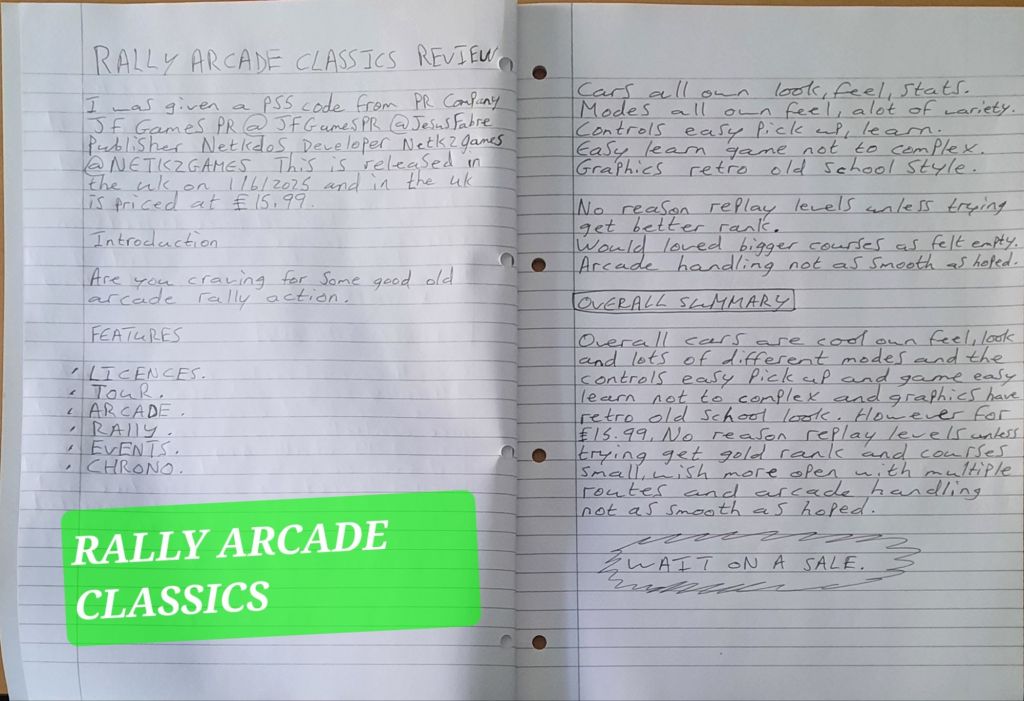 RALLY ARCADE CLASSICS REVIEW
I was given a PS5 code from PR Company
JF Games PR @ JFGamesPR @JesusFabre
Publisher Netkdos Developer Netk2games
@NETK2GAMES This is released in
the uk on 1/6/2025 and in the uk
is priced at £15.99.
Introduction
Are you craving for some good old
arcade rally action.
FEATURES
• LICENCES.
• TOUR.
• ARCADE.
• RALLY.
• EVENTS.
• CHRONO.
RALLY ARCADE
CLASSICS
Cars all own look, feel, stats.
Modes all own feel, alot of variety.
Controls easy pick up, learn.
Easy learn game not to complex.
Graphics retro old school style.
No reason replay levels unless trying
get better rank.
Would loved bigger courses as felt empty.
Arcade handling not as smooth as hoped.
OVERALL SUMMARY
Overall cars are cool own feel, look
and lots of different modes and the
controls easy pick up and game easy
learn not to complex and graphics have
retro old school look. However for
£15.99. No reason replay levels unless
trying get gold rank and courses
small, wish more open with multiple
routes and arcade handling
not as smooth as hoped.
WAIT ON A SALE.